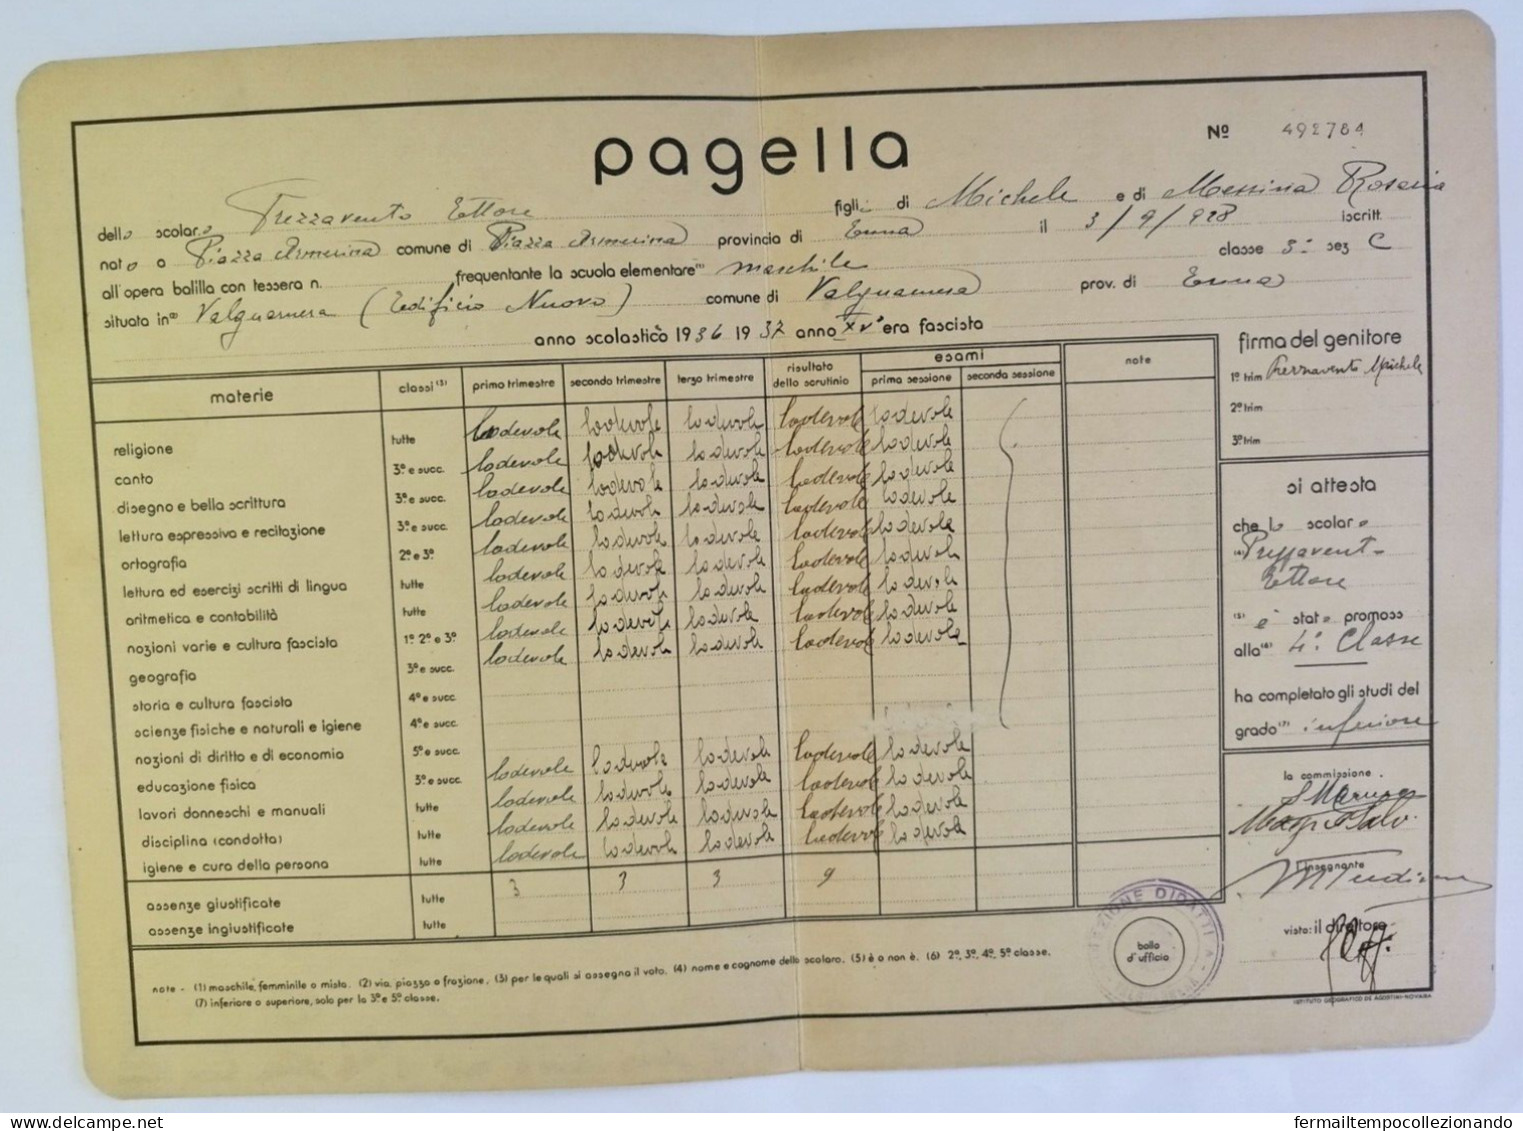 pagella
Nº 492784
dello scolaro Trezzavento Ettore figli. di Michele e di Messina Rosaria
nato a Piazza Armerina comune di Piazza Armerina provincia di Enna il 3/9/928 iscritt.
all'opera balilla con tessera n. frequentante la scuola elementare⁽¹⁾ maschile classe 3ª sez C
situata in⁽²⁾ Valguarnera (Edificio Nuovo) comune di Valguarnera prov. di Enna
anno scolastico 1936 1937 anno XVº era fascista
materie classi⁽³⁾ primo trimestre secondo trimestre terzo trimestre risultato dello scrutinio esami prima sessione seconda sessione note
religione tutte lodevole lodevole lodevole lodevole lodevole
canto 3ª e succ. lodevole lodevole lodevole lodevole lodevole
disegno e bella scrittura 3ª e succ. lodevole lodevole lodevole lodevole lodevole
lettura espressiva e recitazione 3ª e succ. lodevole lodevole lodevole lodevole lodevole
ortografia 2ª e 3ª lodevole lodevole lodevole lodevole lodevole
lettura ed esercizi scritti di lingua tutte lodevole lodevole lodevole lodevole lodevole
aritmetica e contabilità tutte lodevole lodevole lodevole lodevole lodevole
nozioni varie e cultura fascista 1ª 2ª e 3ª lodevole lodevole lodevole lodevole lodevole
geografia 3ª e succ. lodevole lodevole lodevole lodevole lodevole
storia e cultura fascista 4ª e succ.
scienze fisiche e naturali e igiene 4ª e succ.
nozioni di diritto e di economia 5ª e succ.
educazione fisica 3ª e succ. lodevole lodevole lodevole lodevole lodevole
lavori donneschi e manuali tutte lodevole lodevole lodevole lodevole lodevole
disciplina (condotta) tutte lodevole lodevole lodevole lodevole lodevole
igiene e cura della persona tutte lodevole lodevole lodevole lodevole lodevole
assenze giustificate tutte 3 3 3 9
assenze ingiustificate tutte
firma del genitore
1º trim Trezzavento Michele
2º trim
3º trim
si attesta
che lo scolaro
⁽⁴⁾ Trezzavento
Ettore
⁽⁵⁾ è stato promoss
alla⁽⁶⁾ 4ª Classe
ha completato gli studi del
grado⁽⁷⁾ inferiore
la commissione
l'insegnante
visto: il direttore
DIREZIONE DIDATTICA
bollo
d'ufficio
note - (1) maschile, femminile o mista. (2) via, piazza o frazione. (3) per le quali si assegna il voto. (4) nome e cognome dello scolaro. (5) è o non è. (6) 2ª, 3ª, 4ª, 5ª classe.
(7) inferiore o superiore, solo per la 3ª e 5ª classe.
ISTITUTO GEOGRAFICO DE AGOSTINI-NOVARA
fermailtempocollezionando